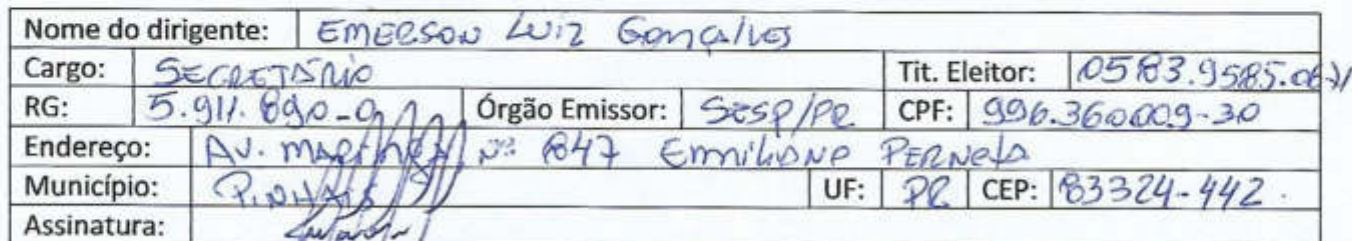 Nome do dirigente: EMERSON LUIZ GONÇALVES
Cargo: SECRETÁRIO Tit. Eleitor: 0583.9585.06
RG: 5.911.890-9 Órgão Emissor: SESP/PR CPF: 996.360009-30
Endereço: AV. Nº 847 EMILIANO PERNETA
Município: PINHAIS UF: PR CEP: 83324-442.
Assinatura: